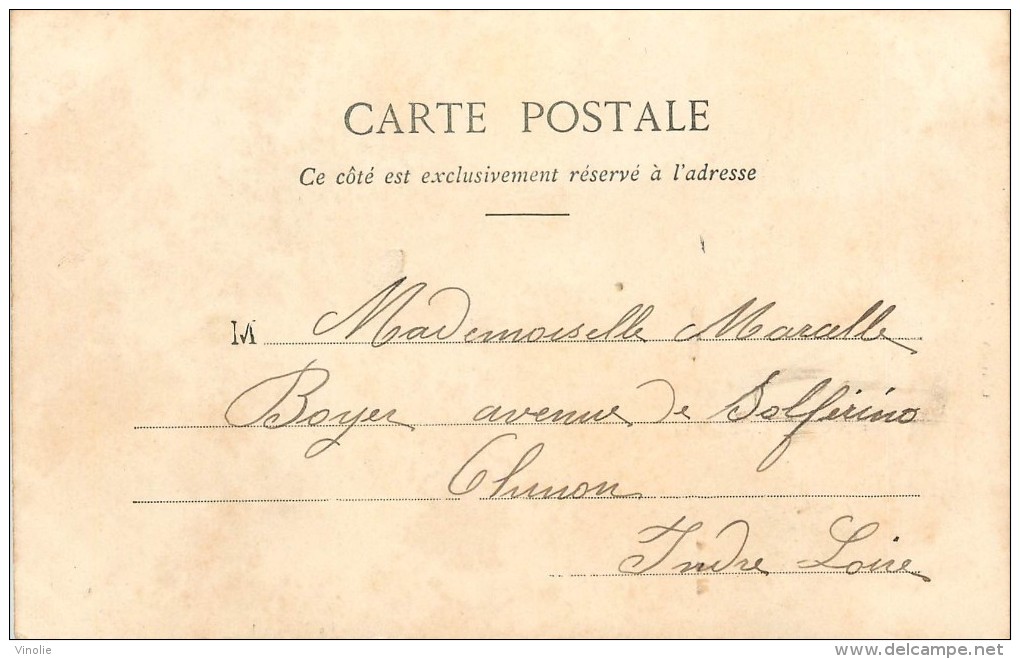 CARTE POSTALE
Ce côté est exclusivement réservé à l'adresse
M Mademoiselle Marcelle
Boyer avenue de Solférino
Chinon
Indre Loire
Vinolie
delcampe.net